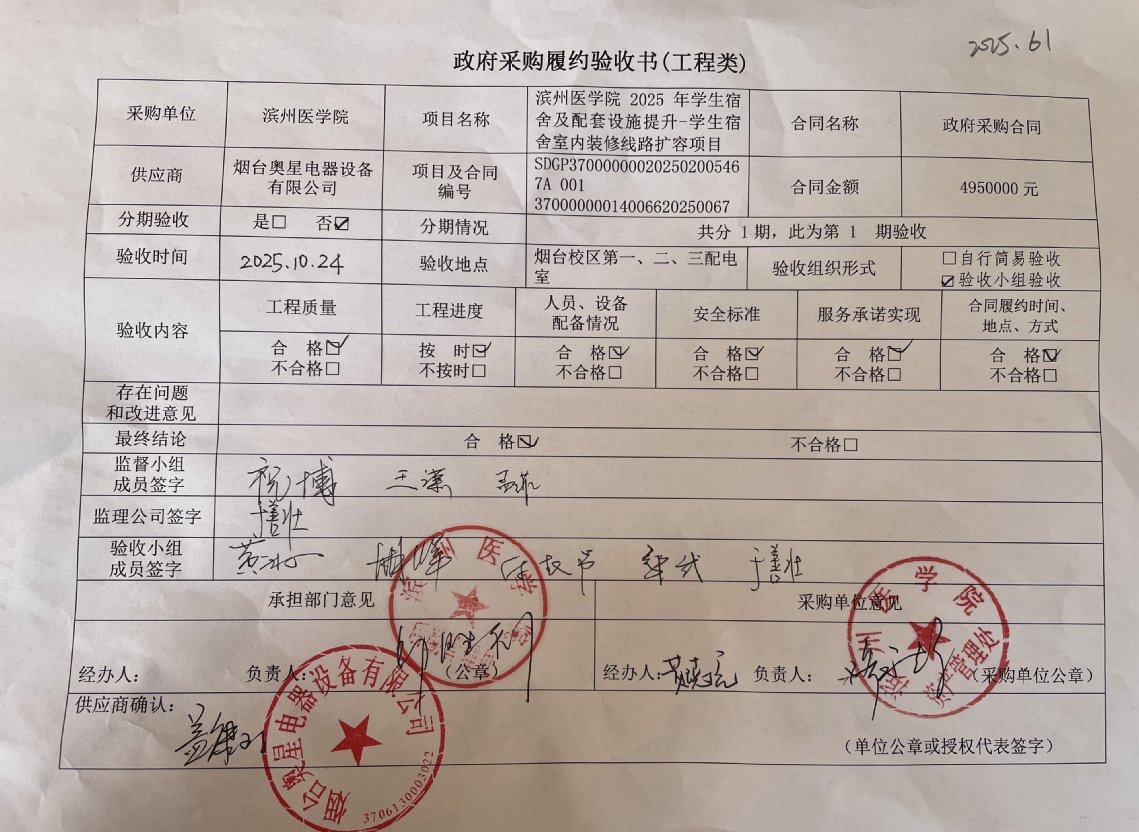 2025.61
政府采购履约验收书(工程类)
采购单位
滨州医学院
项目名称
滨州医学院 2025 年学生宿
舍及配套设施提升-学生宿
舍室内装修线路扩容项目
合同名称
政府采购合同
供应商
烟台奥星电器设备
有限公司
项目及合同
编号
SDGP37000000020250200546
7A 001
37000000014006620250067
合同金额
4950000 元
分期验收
是□ 否☑
分期情况
共分 1 期，此为第 1 期验收
验收时间
2025.10.24
验收地点
烟台校区第一、二、三配电
室
验收组织形式
□自行简易验收
☑验收小组验收
验收内容
工程质量
工程进度
人员、设备
配备情况
安全标准
服务承诺实现
合同履约时间、
地点、方式
合 格☑
不合格□
按 时☑
不按时□
合 格☑
不合格□
合 格☑
不合格□
合 格☑
不合格□
合 格☑
不合格□
存在问题
和改进意见
最终结论
合 格☑
不合格□
监督小组
成员签字
祝博 王潇 孟菲
监理公司签字
于善壮
验收小组
成员签字
于善壮
承担部门意见
采购单位意见
经办人：
负责人：
（公章）
经办人：
负责人：
（采购单位公章）
滨州医学院
滨州医学院
资产管理处
供应商确认：
（单位公章或授权代表签字）
烟台奥星电器设备有限公司
3706130003022